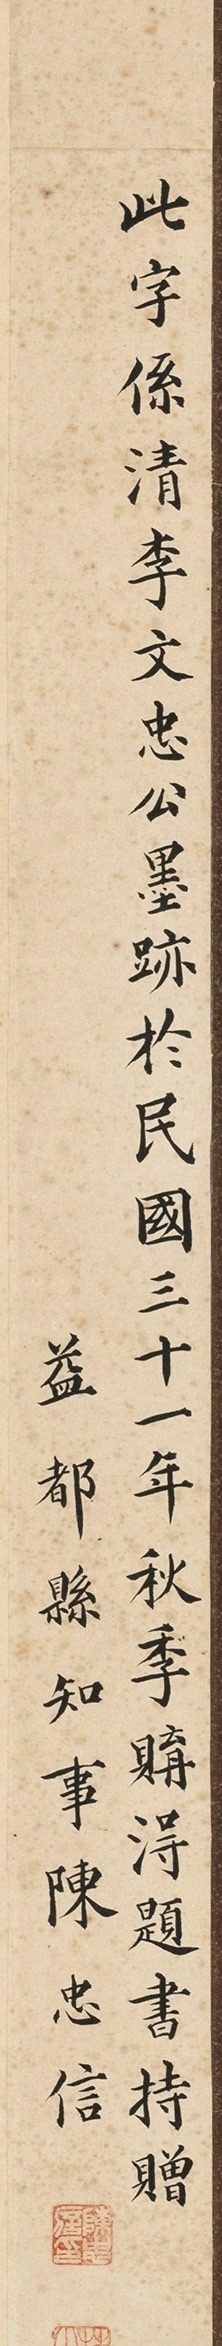 此字係清李文忠公墨跡於民國三十一年秋季購得題書持贈
益都縣知事陳忠信